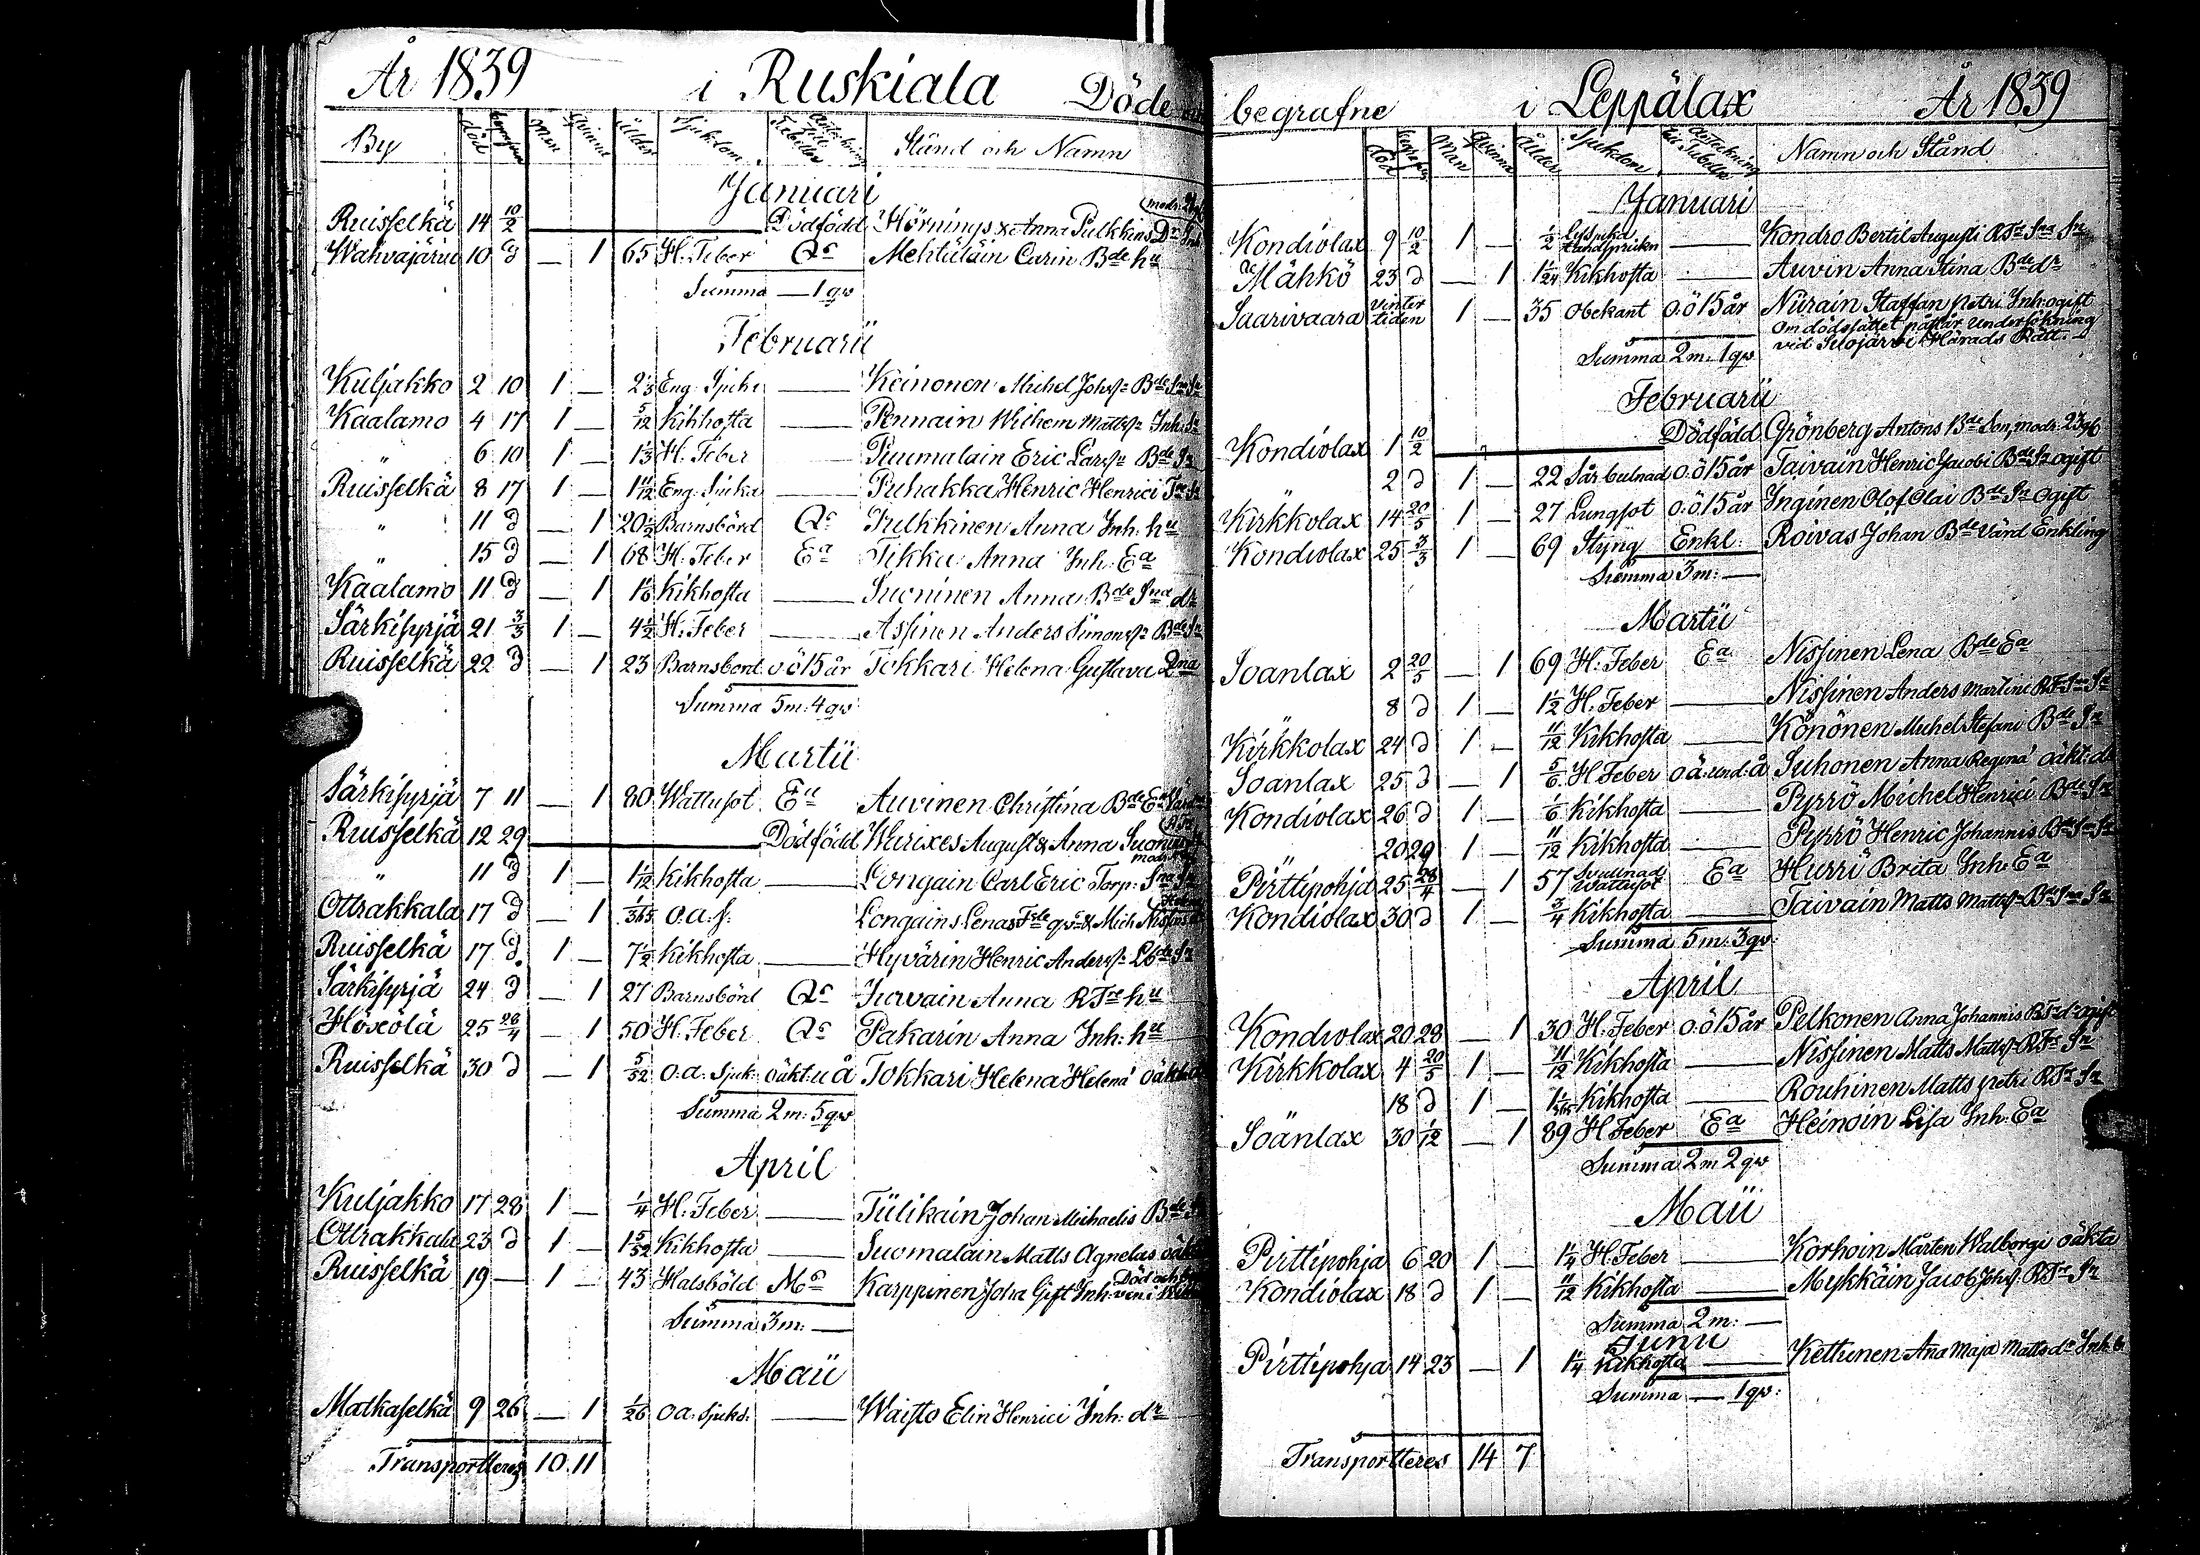 År 1839 i Ruskiala Döde
By död begrafne Man Qvinna Ålder Sjukdom Anteckning till Tabellen Stånd och Namn
Januari
Ruisselkä 14 10/2 Dödfödd Hörnings Anna Pulkkins
Wahvajärwi 10 d — 1 65 H. Feber Qs Mehtäläin Carin Bde hu
Summa — 1 qv
Februarii
Kuljakko 2 10 1 — 2 1/3 Eng. Sjuka — Keinonen Michel Johss Bde
Kaalamo 4 17 1 — 5/12 Kikhosta — Pennain Wilhem Mattss Inh: Sn
" 6 10 1 — 1 1/3 H. Feber — Ruumalain Eric Larss Bde Sn
Ruisselkä 8 17 1 — 1 11/12 Eng. Sjuka — Puhakka Henric Henrici
" 11 d — 1 20 1/2 Barnsbörd Qs Pulkkinen Anna Inh. hu
" 15 d — 1 68 H. Feber Ea Tikka Anna Inh: Ea
Kaalamo 11 d — 1 1 1/6 Kikhosta — Suoninen Anna Bde Sna dr
Särkisyrjä 21 3/3 1 — 4 1/2 H. Feber — Assinen Anders Simonss Bde Sn
Ruisselkä 22 d — 1 23 Barnsbord o ö 15 år Tokkari Helena Gustava
Summa 5 m: 4 qv
Martii
Särkisyrjä 7 11 — 1 80 Wattusot Ea Auvinen Christina Bde Ea
Ruisselkä 12 29 Dödfödd August & Anna
" 11 d 1 — 1 1/12 Kikhosta — Longain Carl Eric Torp: Sna Sn
Ottrakkala 17 d — 1 1/365 o.a.s. Longains Lenas
Ruisselkä 17 d 1 — 7 1/2 Kikhosta — Hyvärin Henric Anderss
Särkisyrjä 24 d — 1 27 Barnsbörd Qs Anna RTre hu
Höxölä 25 26/4 — 1 50 H. Feber Qs Pakarin Anna Inh: hu
Ruisselkä 30 d — 1 5/52 o.a. Sjuk: oäkt: u å Tokkari Helena Helena oäkta
Summa 2 m: 5 qv
April
Kuljakko 17 28 1 — 1/4 H. Feber — Tülikain Johan Michaelis Bde
Ottrakkala 23 d 1 — 1 5/52 Kikhosta — Suomalain Matts Agnetas oäkta
Ruisselkä 19 — 1 — 43 Halsböld Ms Karppinen Joha Gift Inh:
Summa 3 m: —
Maii
Matkaselkä 9 26 — 1 1/26 o a. Sjukd. — Waisto Elin Henrici Inh: dr
Transportteres 10. 11
begrafne i Leppälax År 1839
död begrafne Man Qvinna Ålder Sjukdom Anteckning till Tabellen Namn och Stånd
Januari
Kondiolax 9 10/2 1 — 1/2 — Kondro Bertil Augusti RTr Sna Sn
Mähkö 23 d — 1 1 1/24 Kikhosta — Auvin Anna Stina Bde dr
Saarivaara Vinter tiden 1 — 35 obekant o: ö 15 år Nurain Staffan Petri Inh: ogift
Om dödssättet påstår Undersökning
vid Suojärvi Härads Rätt. —
Summa 2 m: 1 qv
Februarii
Kondiolax 1 10/2 Dödfödd Grönberg Antons Bde Son, modr: 23
2 d 1 — 22 Sår bulnad o: ö 15 år Taivain Henric Jacobi Bde Sn ogift
Kirkkolax 14 20/5 1 — 27 Lungsot o: ö 15 år Inginen Olof Olai Bde Sn ogift
Kondiolax 25 3/3 1 — 69 Styng Enkl: Roivas Johan Bde Värd Enkling
Summa 3 m: —
Martii
Soanlax 2 20/5 — 1 69 H: Feber Ea Nissinen Lena Bde Ea
8 d 1 — 1 1/2 H. Feber — Nissinen Anders Martini RTr Sna Sn
Kirkkolax 24 d 1 — 11/12 Kikhosta — Könönen Michel Stefani Bde Sn
Soanlax 25 d — 1 5/6 H Feber o ä: und: å Suhonen Anna Regina oäkt: dr
Kondiolax 26 d 1 — 1/6 Kikhosta — Pyrrö Michel Henrici Bde Sn
20 29 1 — 11/12 Kikhosta — Pyrrö Henric Johannis Bde Sn Sn
Pirttipohja 25 28/4 — 1 57 Svullnad Wattusot Ea Hurri Brita Inh: Ea
Kondiolax 30 d 1 — 3/4 Kikhosta — Taivain Matts Mattss Bde Sna Sn
Summa 5 m: 3 qv:
April
Kondiolax 20 28 — 1 30 H. Feber o: ö 15 år Pelkonen Anna Johannis RTr dr ogift
Kirkkolax 4 20/5 1 — 11/12 Kikhosta — Nissinen Matts Mattss RTr Sn
18 d 1 — 1 1/365 Kikhosta — Rouhinen Matts Petri RTr Sn
Soänlax 30 1/12 — 1 89 H Feber Ea Heinoin Lisa Inh: Ea
Summa 2 m 2 qv
Maii
Pirttipohja 6 20 1 — 1 1/4 H Feber — Korhoin Mårten Walborgi oäkta
Kondiolax 18 d 1 — 11/12 Kikhosta — Mykkäin Jacob Johss RTr Sn
Summa 2 m: —
Junii
Pirttipohja 14 23 — 1 1 1/4 Kikhosta — Kettunen Ana Maja Matts dr Inh
Summa — 1 qv:
Transportteres 14 7